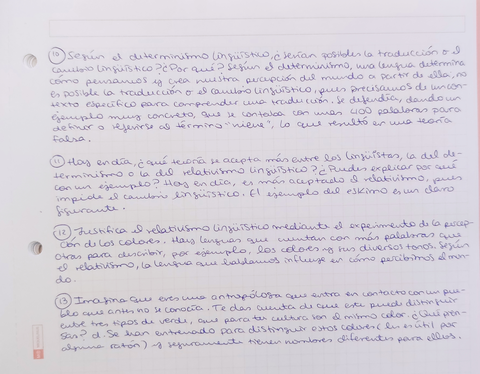 ⑩ Según el determinismo lingüístico, ¿serían posibles la traducción o el
cambio lingüístico? ¿Por qué? Según el determinismo, una lengua determina
cómo pensamos y crea nuestra percepción del mundo a partir de ella, no
es posible la traducción o el cambio lingüístico, pues precisamos de un con-
texto específico para comprender una traducción. Se defendía, dando un
ejemplo muy concreto, que se contaba con unas 400 palabras para
definir o referirse al término "nieve", lo que resultó en una teoría
falsa.
⑪ Hoy en día, ¿qué teoría se acepta más entre los lingüistas, la del de-
terminismo o la del relativismo lingüístico? ¿Puedes explicar por qué
con un ejemplo? Hoy en día, es más aceptado el relativismo, pues
impedía el cambio lingüístico. El ejemplo del eskimo es un claro
figurante.
⑫ Justifica el relativismo lingüístico mediante el experimento de la percep-
ción de los colores. Hay lenguas que cuentan con más palabras que
otras para describir, por ejemplo, los colores y sus diversos tonos. Según
el relativismo, la lengua que hablamos influye en cómo percibimos el mun-
do.
⑬ Imagina que eres una antropóloga que entra en contacto con un pue-
blo que antes no se conocía. Te das cuenta de que este puede distinguir
entre tres tipos de verde, que para tu cultura son el mismo color. ¿Qué pien-
sas? d. Se han entrenado para distinguir estos colores (les es útil por
alguna razón) y seguramente tienen nombres diferentes para ellos.